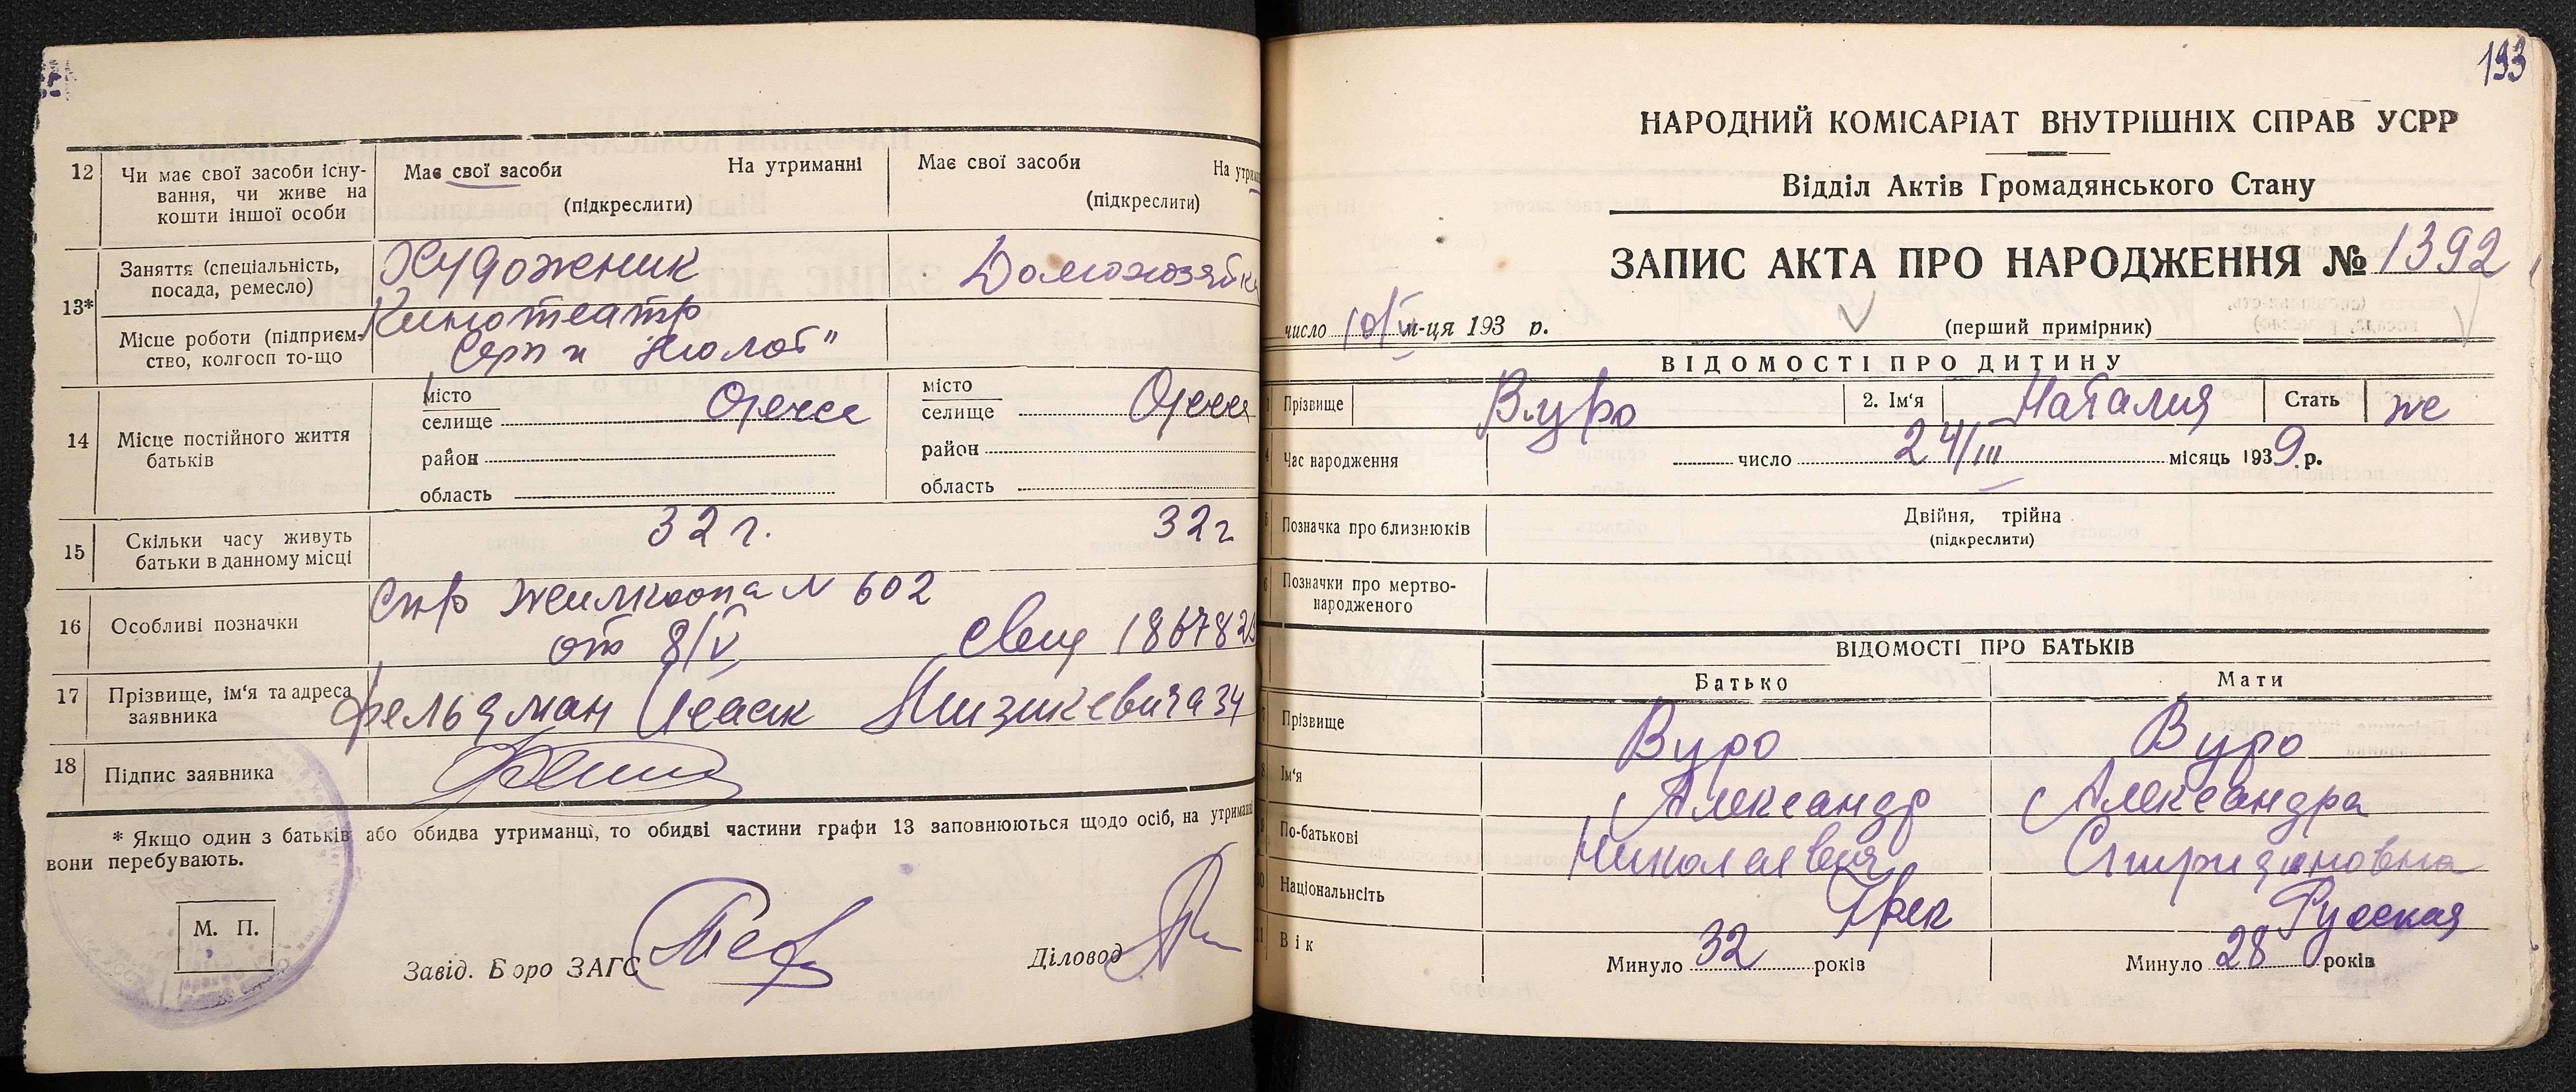 12
Чи має свої засоби існу-
вання, чи живе на
кошти іншої особи
Має свої засоби На утриманні
(підкреслити)
Має свої засоби На утрим
(підкреслити)
13*
Заняття (спеціальність,
посада, ремесло)
Художник
Домохозяйка
Місце роботи (підприєм-
ство, колгосп то-що
Кинотеатр
Серп и Молот"
14
Місце постійного життя
батьків
місто
селище Одесса
район
область
місто
селище Одесса
район
область
15
Скільки часу живуть
батьки в данному місці
32 г.
32 г
16
Особливі позначки
Спр Жилкоопа N 602
от 8/IV
17
Прізвище, ім'я та адреса
заявника
Фельдман Исаак 34
18
Підпис заявника
* Якщо один з батьків або обидва утриманці, то обидві частини графи 13 заповнюються щодо осіб, на утриманні
вони перебувають.
М. П.
Завід. Бюро ЗАГС
Діловод
193
НАРОДНИЙ КОМІСАРІАТ ВНУТРІШНІХ СПРАВ УСРР
Відділ Актів Громадянського Стану
ЗАПИС АКТА ПРО НАРОДЖЕННЯ № 1392
число 10/IV м-ця 193 р.
(перший примірник)
ВІДОМОСТІ ПРО ДИТИНУ
Прізвище Вуро 2. Ім'я Наталия Стать же
Час народження число 24/III місяць 1939 р.
Позначка про близнюків
Двійня, трійна
(підкреслити)
Позначки про мертво-
народженого
ВІДОМОСТІ ПРО БАТЬКІВ
Батько Мати
Прізвище Вуро Вуро
Ім'я Александр Александра
По-батькові Николаевич Спиридоновна
Національнсіть Грек Русская
Вік
Минуло 32 років
Минуло 28 років